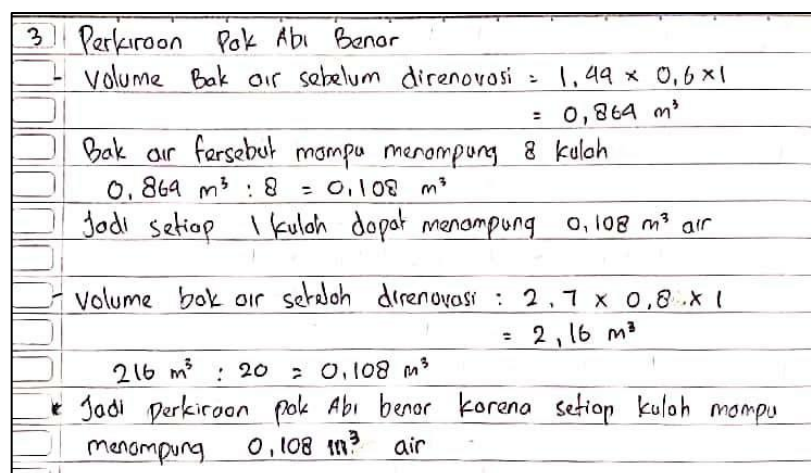 3 Perkiraan Pak Abi Benar
- Volume Bak air sebelum direnovasi = 1,44 x 0,6 x 1
= 0,864 m³
Bak air tersebut mampu menampung 8 kulah
0,864 m³ : 8 = 0,108 m³
Jadi setiap 1 kulah dapat menampung 0,108 m³ air
- Volume bak air setelah direnovasi : 2,7 x 0,8 x 1
= 2,16 m³
216 m³ : 20 = 0,108 m³
* Jadi perkiraan pak Abi benar karena setiap kulah mampu
menampung 0,108 m³ air